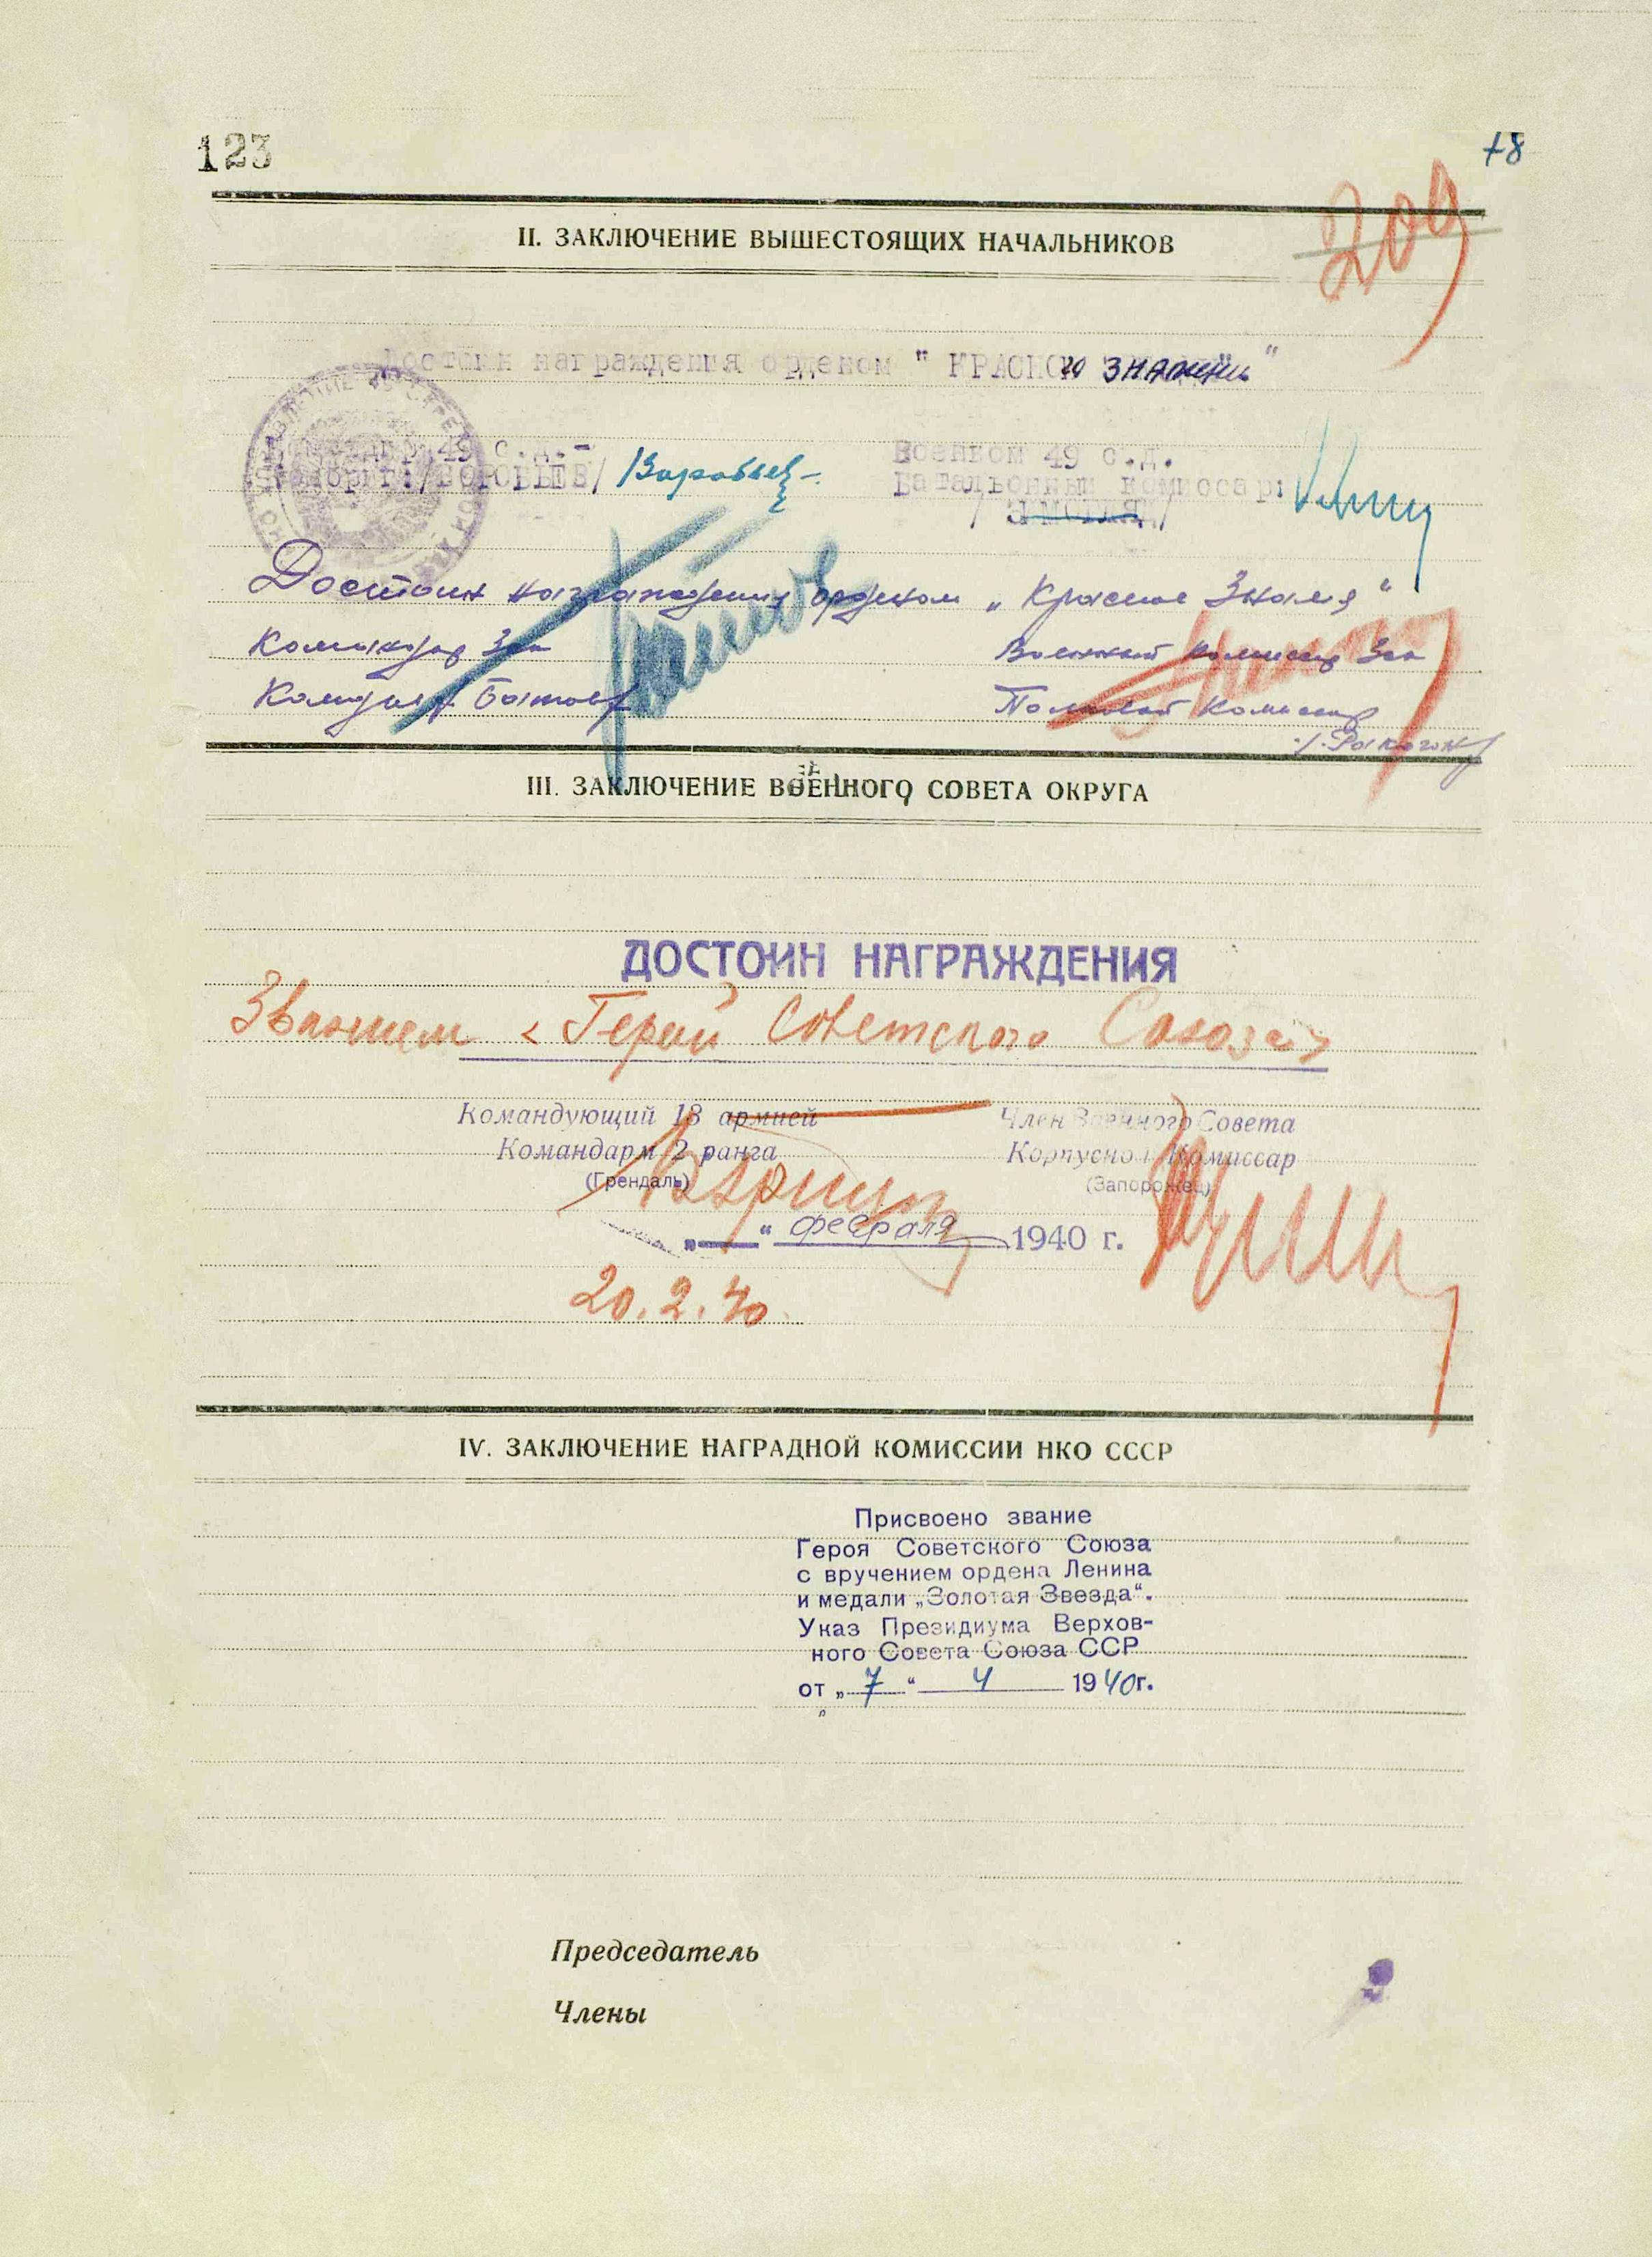 123
78
209
II. ЗАКЛЮЧЕНИЕ ВЫШЕСТОЯЩИХ НАЧАЛЬНИКОВ
Достоин награждения орденом " КРАСНОЮ ЗНАМЕНЬ "
Командир 49 с.д.-
Комбриг:/ВОРОБЬЕВ/ Воробьев
Военком 49 с.д.
Батальонный комиссар:
Достоин награждения орденом „ Красное Знамя "
Командир 3ск
Военный Комиссар 3ск
Комдив Батов
Полковой Комиссар
III. ЗАКЛЮЧЕНИЕ ВОЕННОГО СОВЕТА ОКРУГА
ДОСТОИН НАГРАЖДЕНИЯ
Званием «Герой Советского Союза»
Командующий 13 армией
Член Военного Совета
Командарм 2 ранга
Корпусной Комиссар
(Грендаль)
(Запорожец)
„ “ февраля 1940 г.
20.2.40
IV. ЗАКЛЮЧЕНИЕ НАГРАДНОЙ КОМИССИИ НКО СССР
Присвоено звание
Героя Советского Союза
с вручением ордена Ленина
и медали „Золотая Звезда“.
Указ Президиума Верхов-
ного Совета Союза ССР
от „ 7 “ 4 1940г.
Председатель
Члены